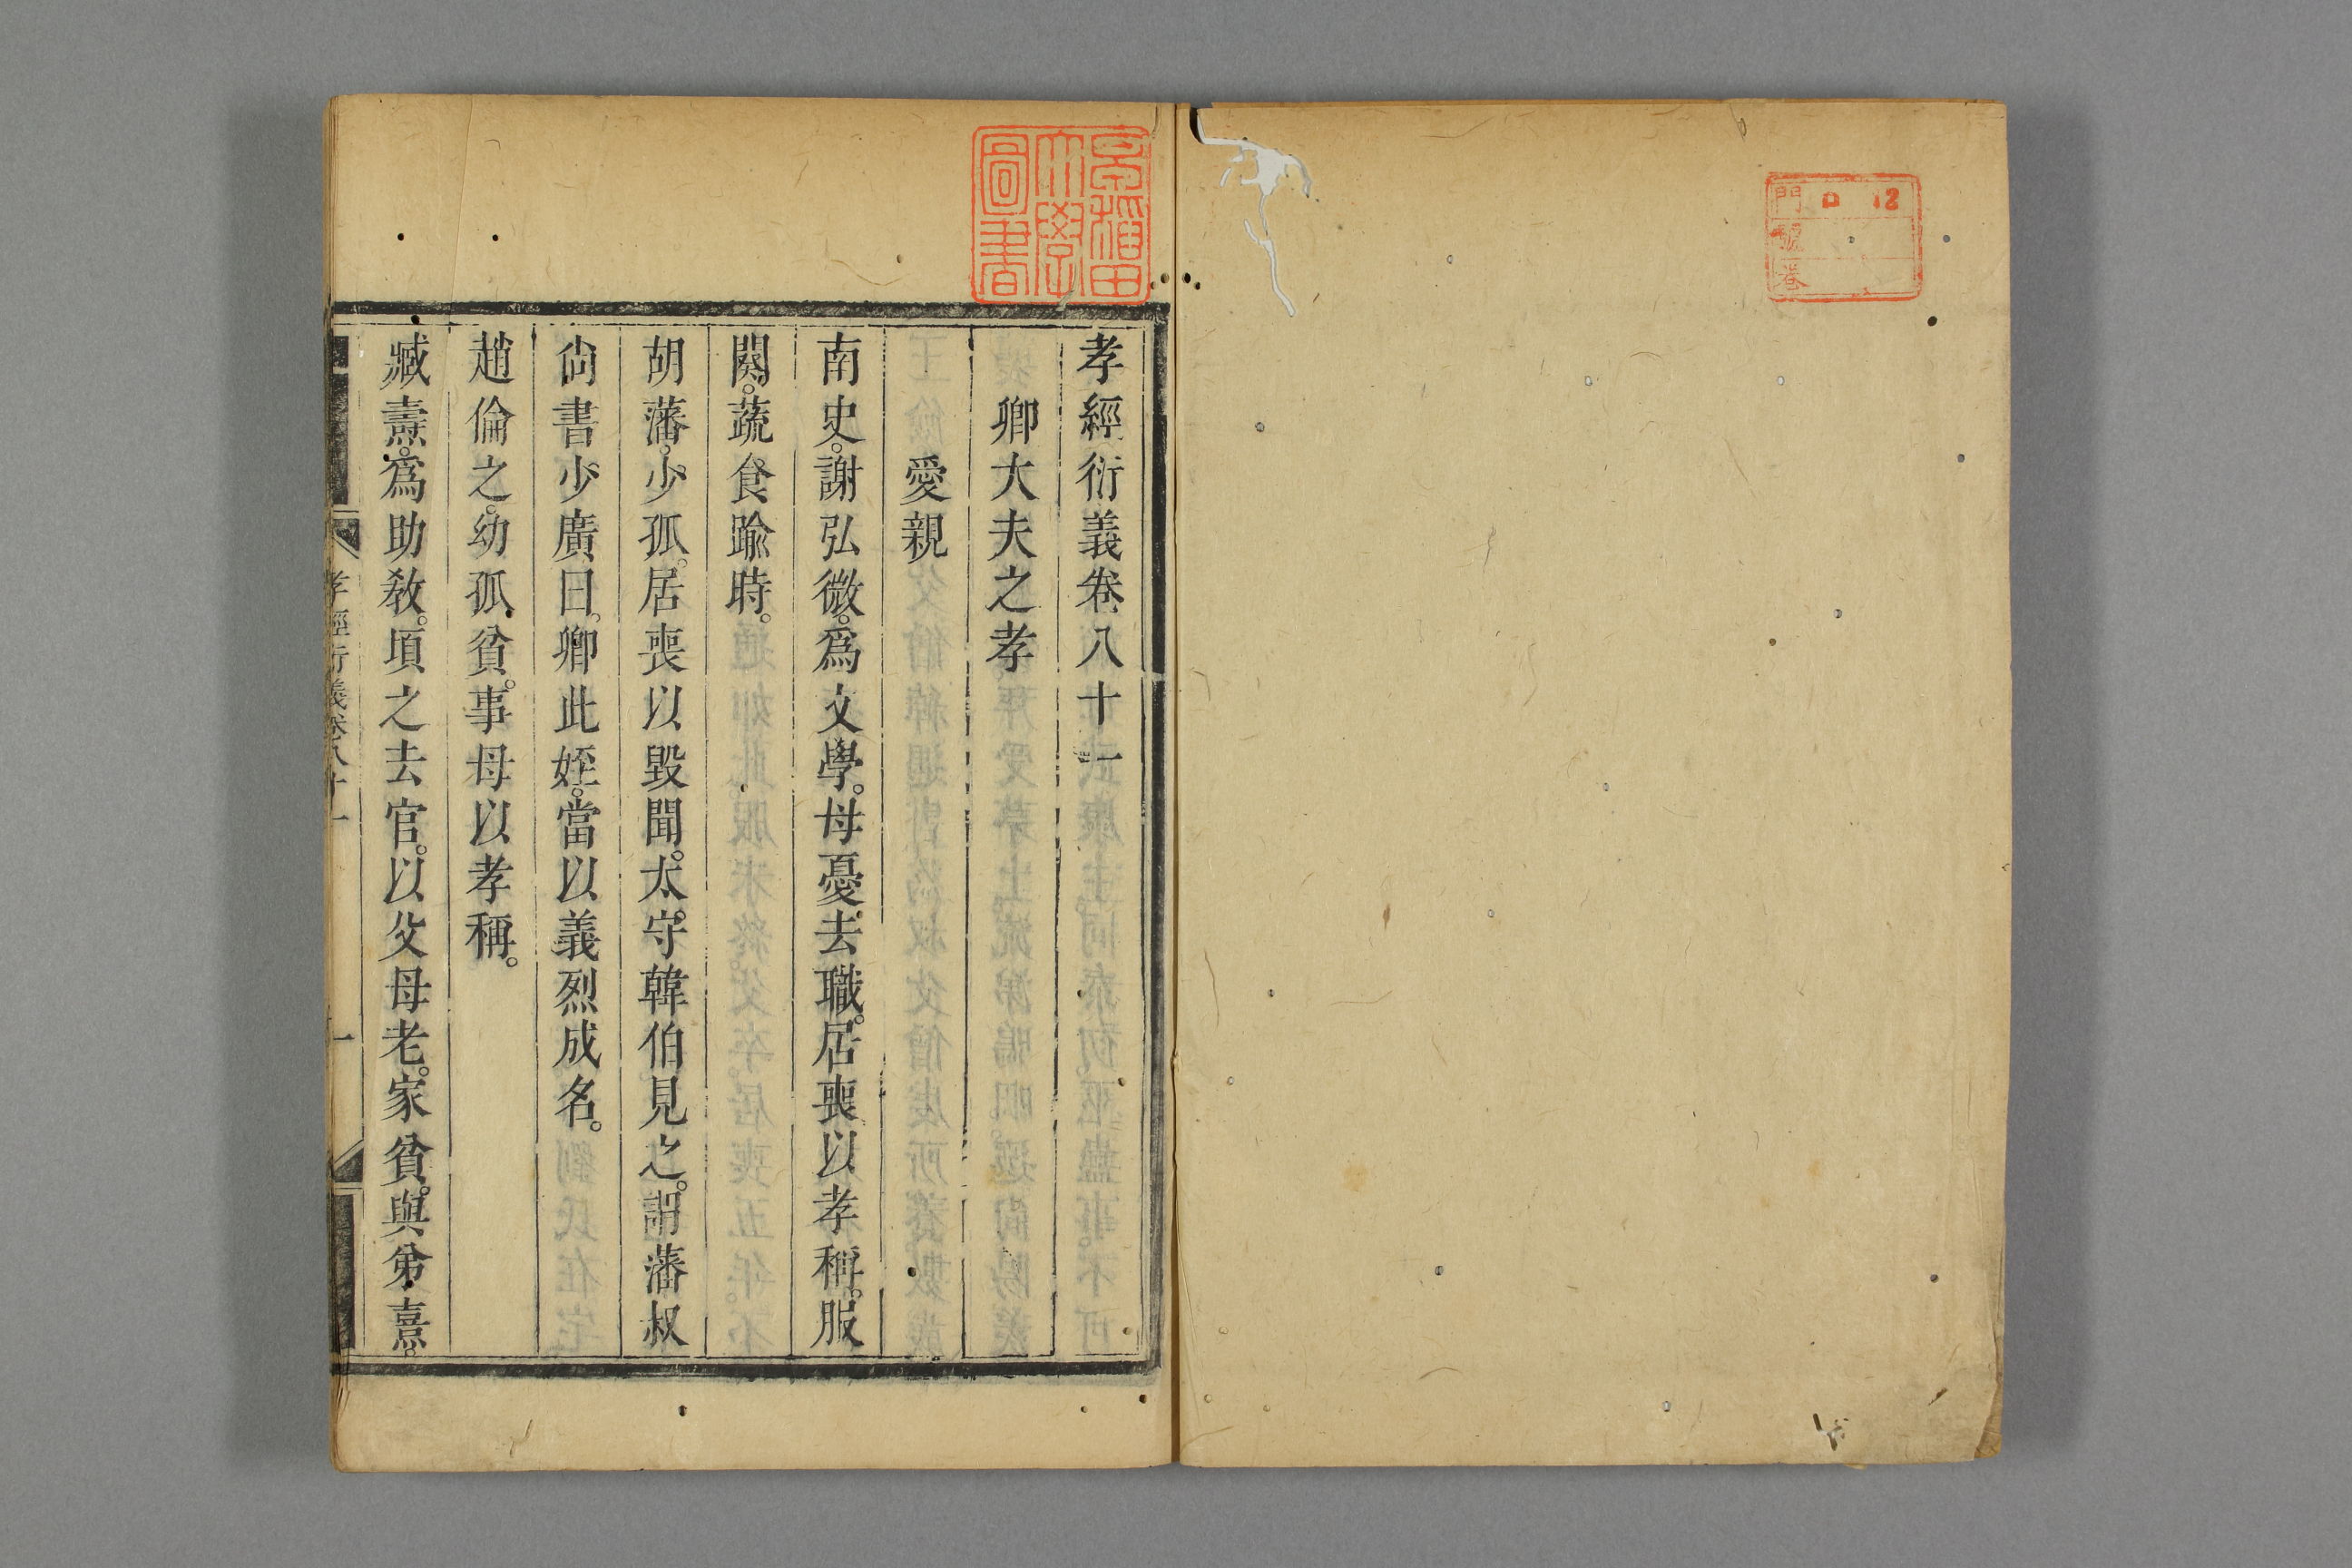 門 ロ 12
號
卷
早稲田
大學
圖書
孝經衍義卷八十一
卿大夫之孝
愛親
南史。謝弘微。爲文學。母憂去職。居喪以孝稱。服
闋。蔬食踰時。
胡藩。少孤。居喪以毀聞。太守韓伯見之。謂藩叔
尙書少廣曰。卿此姪。當以義烈成名。
趙倫之。幼孤貧。事母以孝稱。
臧燾。爲助敎。頃之去官。以父母老。家貧。與弟熹。
孝經衍義卷八十一
一